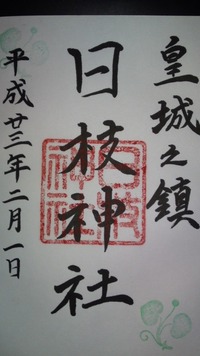 皇城之鎮
日枝神社
平成廿三年二月一日
日枝神社